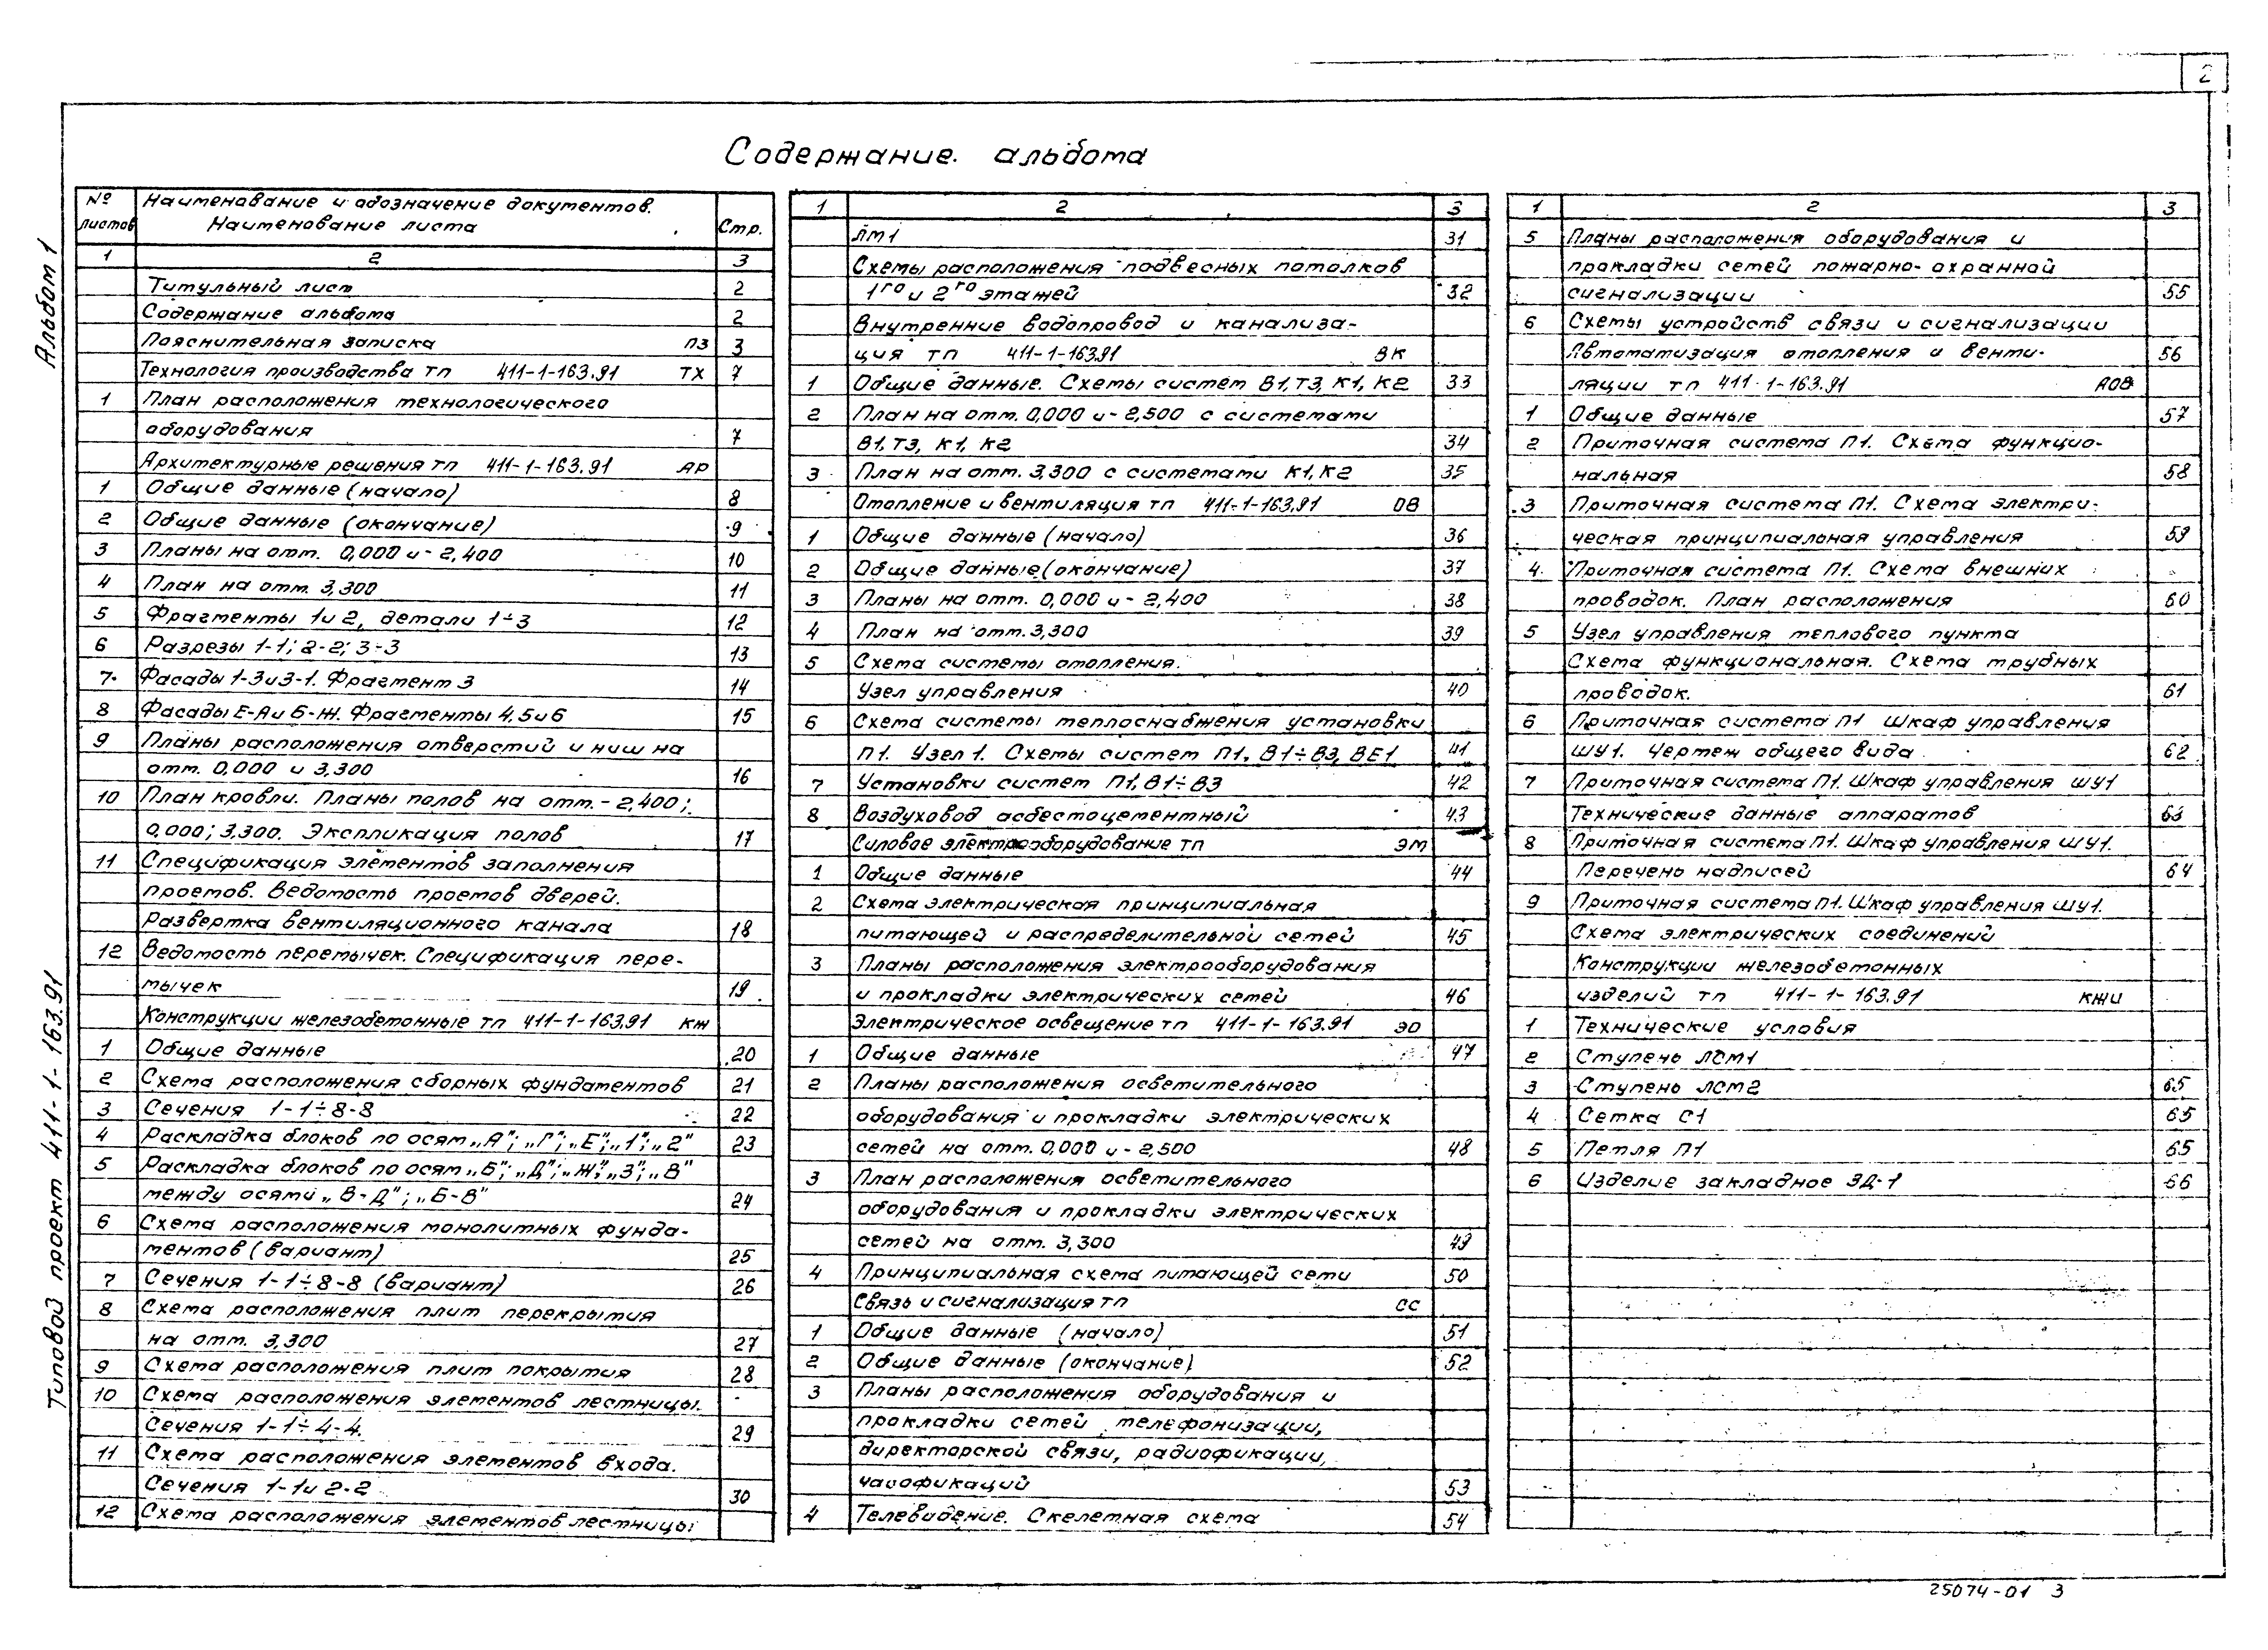 2
Содержание альбома
Альбом 1
Типовой проект 411-1-163.91
№ листов
Наименование и обозначение документов.
Наименование листа
Стр.
1 2 3
Титульный лист 2
Содержание альбома 2
Пояснительная записка ПЗ 3
Технология производства тп 411-1-163.91 ТХ 7
1 План расположения технологического
оборудования 7
Архитектурные решения тп 411-1-163.91 АР
1 Общие данные (начало) 8
2 Общие данные (окончание) 9
3 Планы на отм. 0,000 и -2,400 10
4 План на отм. 3,300 11
5 Фрагменты 1 и 2, детали 1÷3 12
6 Разрезы 1-1; 2-2; 3-3 13
7 Фасады 1-3 и 3-1. Фрагмент 3 14
8 Фасады Е-А и Б-Ж. Фрагменты 4,5 и 6 15
9 Планы расположения отверстий и ниш на
отм. 0,000 и 3,300 16
10 План кровли. Планы полов на отм. -2,400;
0,000; 3,300. Экспликация полов 17
11 Спецификация элементов заполнения
проемов. Ведомость проемов дверей.
Развертка вентиляционного канала 18
12 Ведомость перемычек. Спецификация пере-
мычек 19
Конструкции железобетонные тп 411-1-163.91 КЖ
1 Общие данные 20
2 Схема расположения сборных фундаментов 21
3 Сечения 1-1÷8-8 22
4 Раскладка блоков по осям „А"; „Г"; „Е"; „1"; „2" 23
5 Раскладка блоков по осям „Б"; „Д"; „Ж"; „3"; „В"
между осями „В-Д"; „Б-В" 24
6 Схема расположения монолитных фунда-
ментов (вариант) 25
7 Сечения 1-1÷8-8 (вариант) 26
8 Схема расположения плит перекрытия
на отм. 3,300 27
9 Схема расположения плит покрытия 28
10 Схема расположения элементов лестницы.
Сечения 1-1÷4-4. 29
11 Схема расположения элементов входа.
Сечения 1-1 и 2-2 30
12 Схема расположения элементов лестницы
1 2 3
ЛМ1 31
Схемы расположения подвесных потолков
1го и 2го этажей 32
Внутренние водопровод и канализа-
ция тп 411-1-163.91 ВК
1 Общие данные. Схемы систем В1, Т3, К1, К2 33
2 План на отм. 0,000 и -2,500 с системами
В1, Т3, К1, К2 34
3 План на отм. 3,300 с системами К1, К2 35
Отопление и вентиляция тп 411-1-163.91 ОВ
1 Общие данные (начало) 36
2 Общие данные (окончание) 37
3 Планы на отм. 0,000 и -2,400 38
4 План на отм. 3,300 39
5 Схема системы отопления.
Узел управления 40
6 Схема системы теплоснабжения установки
П1. Узел 1. Схемы систем П1, В1÷В3, ВЕ1 41
7 Установки систем П1, В1÷В3 42
8 Воздуховод асбестоцементный 43
Силовое электрооборудование тп ЭМ
1 Общие данные 44
2 Схема электрическая принципиальная
питающей и распределительной сетей 45
3 Планы расположения электрооборудования
и прокладки электрических сетей 46
Электрическое освещение тп 411-1-163.91 ЭО
1 Общие данные 47
2 Планы расположения осветительного
оборудования и прокладки электрических
сетей на отм. 0,000 и -2,500 48
3 План расположения осветительного
оборудования и прокладки электрических
сетей на отм. 3,300 49
4 Принципиальная схема питающей сети 50
Связь и сигнализация тп СС
1 Общие данные (начало) 51
2 Общие данные (окончание) 52
3 Планы расположения оборудования и
прокладки сетей телефонизации,
директорской связи, радиофикации,
часофикаций 53
4 Телевидение. Скелетная схема 54
1 2 3
5 Планы расположения оборудования и
прокладки сетей пожарно-охранной
сигнализации 55
6 Схемы устройств связи и сигнализации 56
Автоматизация отопления и венти-
ляции тп 411-1-163.91 АОВ
1 Общие данные 57
2 Приточная система П1. Схема функцио-
нальная 58
3 Приточная система П1. Схема электри-
ческая принципиальная управления 59
4 Приточная система П1. Схема внешних
проводок. План расположения 60
5 Узел управления теплового пункта
Схема функциональная. Схема трубных
проводок. 61
6 Приточная система П1 Шкаф управления
ШУ1. Чертеж общего вида 62
7 Приточная система П1. Шкаф управления ШУ1
Технические данные аппаратов 63
8 Приточная система П1. Шкаф управления ШУ1.
Перечень надписей 64
9 Приточная система П1. Шкаф управления ШУ1.
Схема электрических соединений
Конструкции железобетонных
изделий тп 411-1-163.91 КЖИ
1 Технические условия
2 Ступень ЛСМ1
3 Ступень ЛСМ2 65
4 Сетка С1 65
5 Петля П1 65
6 Изделие закладное ЗД-1 66
25074-01 3